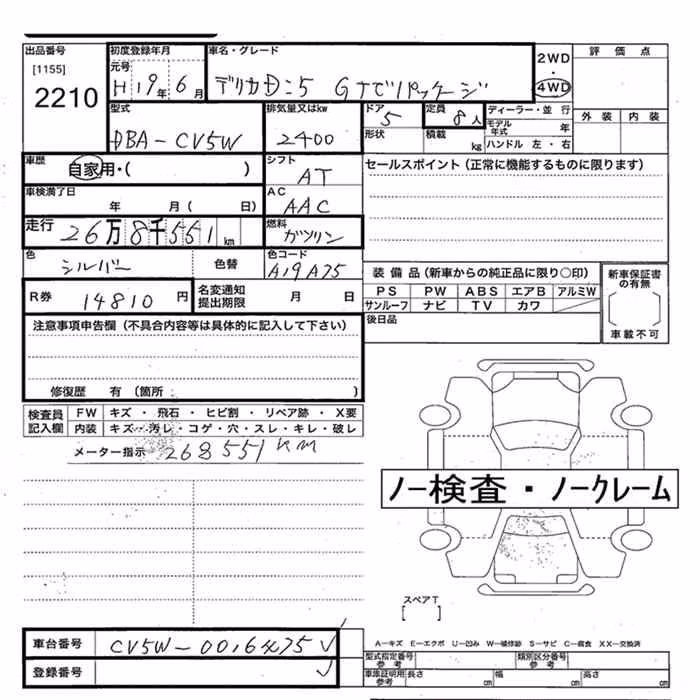 出品番号
[1155]
2210
初度登録年月
元号
H19年6月
車名・グレード
デリカD:5 Gナビパッケージ
2WD
・
4WD
評価点
外装 内装
型式
DBA-CV5W
排気量又はkw
2400
ドア
5
形状
定員
8人
積載
kg
ディーラー・並行
モデル年式 年
ハンドル 左・右
車歴
自家用・( )
シフト
AT
セールスポイント(正常に機能するものに限ります)
車検満了日
年 月( 日)
AC
AAC
走行
26万8千551km
燃料
ガソリン
色
シルバー
色替
色コード
A19A75
装備品(新車からの純正品に限り○印)
PS PW ABS エアB アルミW
サンルーフ ナビ TV カワ
新車保証書の有無
車載不可
R券
14810円
名変通知
提出期限
月 日
後日品
注意事項申告欄(不具合内容等は具体的に記入して下さい)
修復歴 有(箇所 )
検査員
記入欄
FW キズ・飛石・ヒビ割・リペア跡・X要
内装 キズ・汚レ・コゲ・穴・スレ・キレ・破レ
メーター指示 268551KM
ノー検査・ノークレーム
スペアT
[ ]
車台番号
登録番号
A-キズ E-エクボ U-凹み W-補修跡 S-サビ C-腐食 XX-交換済
型式指定番号
参考
類別区分番号
参考
車庫証明用
参考
長さ cm
幅 cm
高さ cm